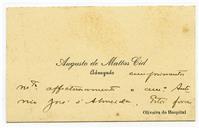 Augusto de Mattos Cid
Advogado
cumprimenta
affectuosamente o
Antonio José d'Almeida.
Oliveira do Hospital